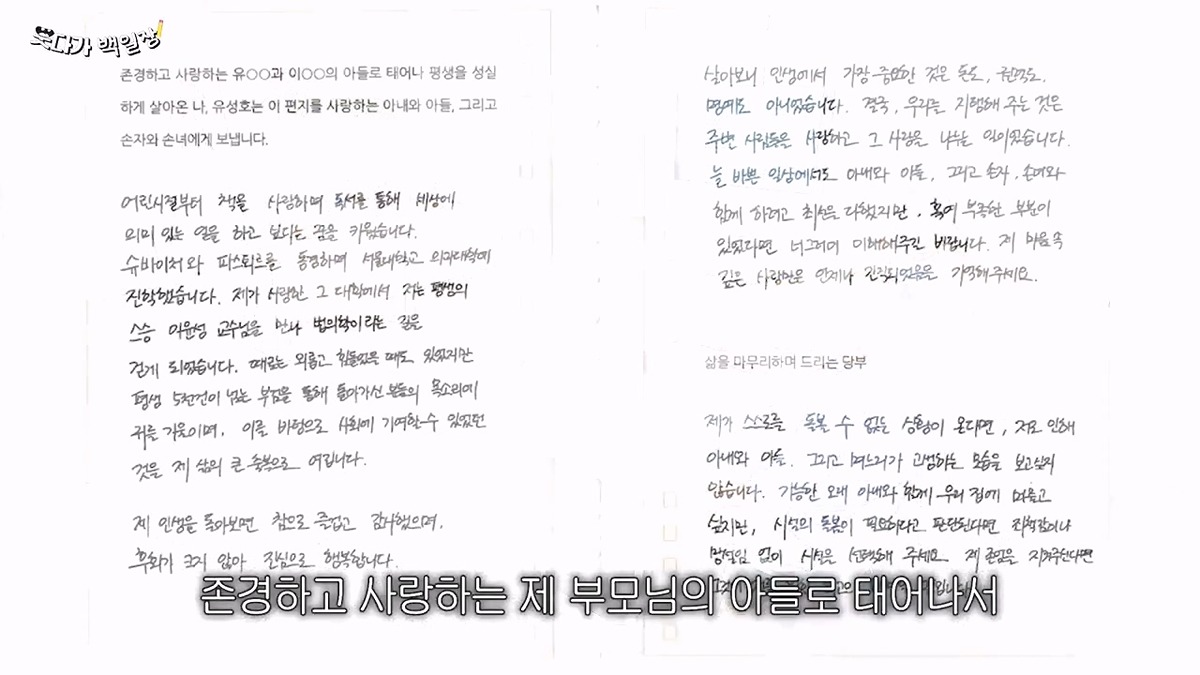 웃다가 백일장
존경하고 사랑하는 유○○과 이○○의 아들로 태어나 평생을 성실
하게 살아온 나, 유성호는 이 편지를 사랑하는 아내와 아들, 그리고
손자와 손녀에게 보냅니다.
어린시절부터 책을 사랑하며 독서를 통해 세상에
의미 있는 일을 하고 싶다는 꿈을 키웠습니다.
슈바이처와 파스퇴르를 동경하며 서울대학교 의과대학에
진학했습니다. 제가 사랑한 그 대학에서 저는 평생의
스승 이윤성 교수님을 만나 법의학이라는 길을
걷게 되었습니다. 때로는 외롭고 힘들었을 때도 있었지만
평생 5천건이 넘는 부검을 통해 돌아가신 분들의 목소리에
귀를 기울이며, 이를 바탕으로 사회에 기여할 수 있었던
것을 제 삶의 큰 축복으로 여깁니다.
제 인생을 돌아보면 참으로 즐겁고 감사했으며,
후회가 크지 않아 진심으로 행복합니다.
살아보니 인생에서 가장 중요한 것은 돈도, 권력도,
명예도 아니었습니다. 결국, 우리를 지탱해 주는 것은
주변 사람들을 사랑하고 그 사랑을 나누는 일이었습니다.
늘 바쁜 일상에서도 아내와 아들, 그리고 손자, 손녀와
함께 하려고 최선을 다했지만, 혹여 부족한 부분이
있었다면 너그러이 이해해주길 바랍니다. 제 마음 속
깊은 사랑만은 언제나 간직되었음을 기억해주세요.
삶을 마무리하며 드리는 당부
제가 스스로를 돌볼 수 없는 상황이 온다면, 저로 인해
아내와 아들, 그리고 며느리가 고생하는 모습을 보고싶지
않습니다. 가능한 오래 아내와 함께 우리 집에 머물고
싶지만, 시설의 돌봄이 필요하다고 판단된다면 죄책감이나
망설임 없이 시설을 선택해 주세요. 제 존엄을 지켜주신다면
존경하고 사랑하는 제 부모님의 아들로 태어나서